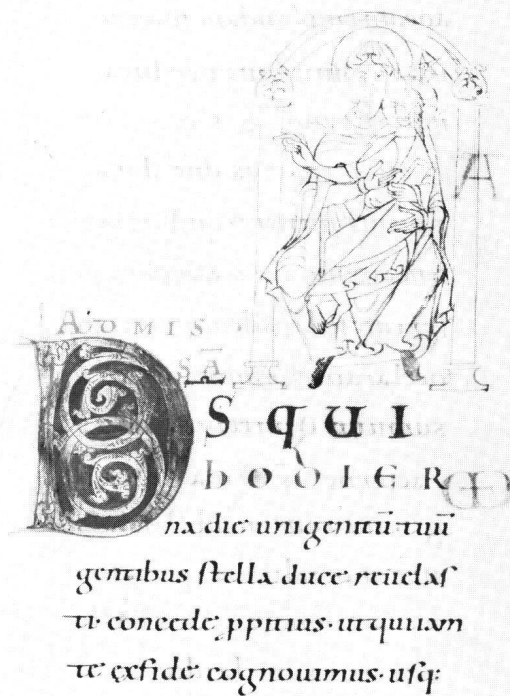 AD MIS
SĀ
D̄S QUI
hODIER
na die unigenitū tuū
gentibus stella duce reuelas
ti· concede ꝓpitius· ut qui iam
te ex fide cognouimus· usq: